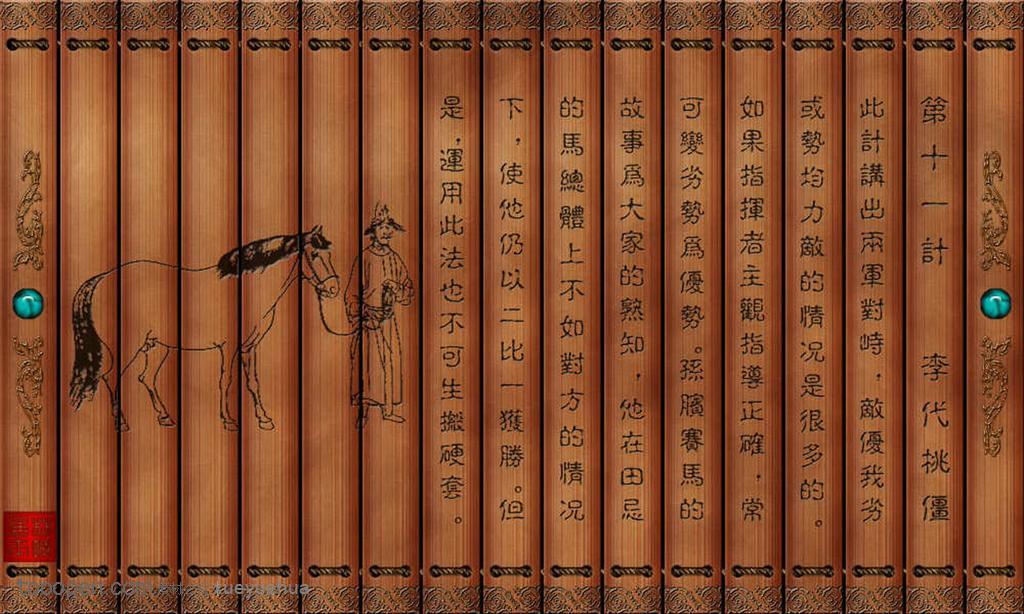 第十一計 李代桃僵
此計講出兩軍對峙，敵優我劣
或勢均力敵的情況是很多的。
如果指揮者主觀指導正確，常
可變劣勢爲優勢。孫臏賽馬的
故事爲大家的熟知，他在田忌
的馬總體上不如對方的情況
下，使他仍以二比一獲勝。但
是，運用此法也不可生搬硬套。